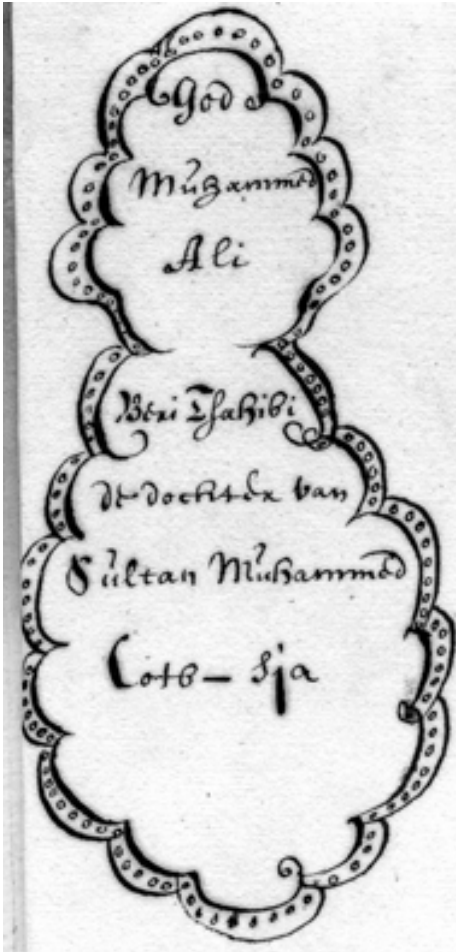 God
Muhammed
Ali
Beri Tsahibi
de dochter van
Sultan Muhammed
Cotb - sja